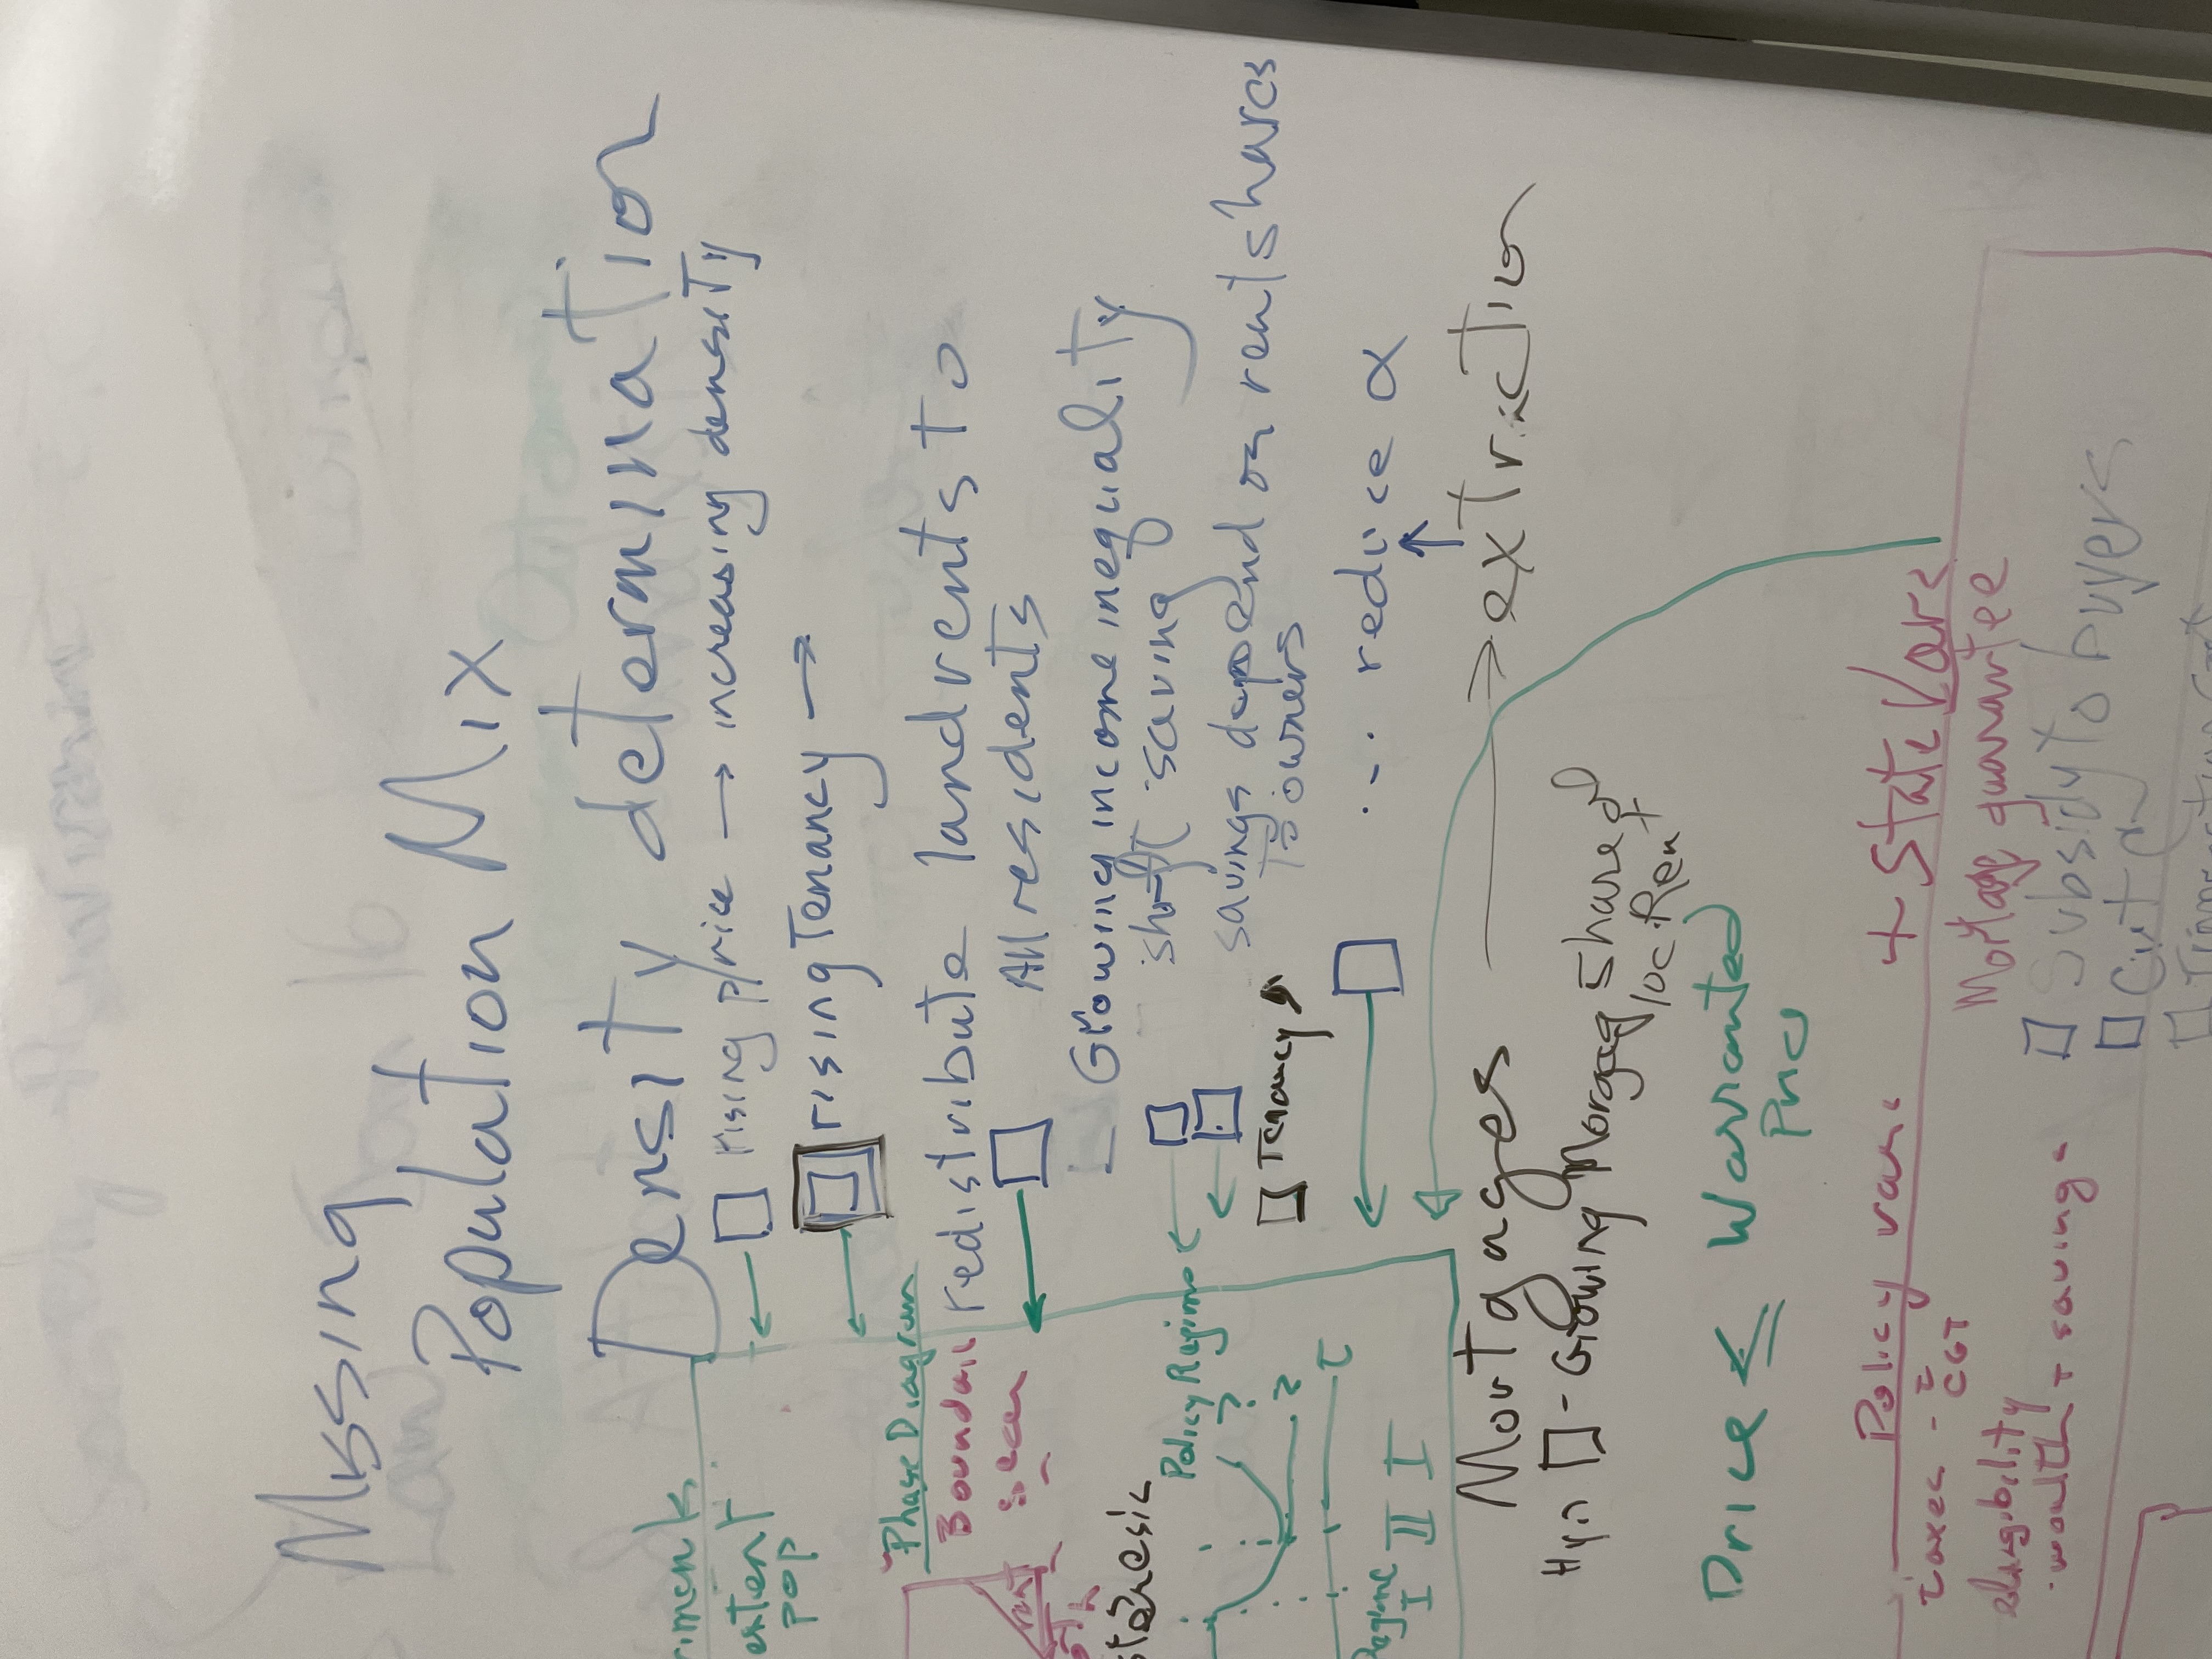 Missing
Population Mix
Density determination
rising price → increasing density
rising Tenancy →
redistribute land rents to
All residents
Growing income inequality
shift saving
savings depend on rent shares
To owners
Tenancy
... reduce α
↑
Mortgages → extraction
Growing Morgag Share of
loc. Rent
Price ≤ Warranted
Price
extent
pop
Phase Diagram
rent
Policy Regime
?
?
τ
Regime
I II I
Policy vars + State Vars
taxes - τ
CGT
elingibility
wealth + savings
Mortage guarantee
Subsidy to buyers
Cut